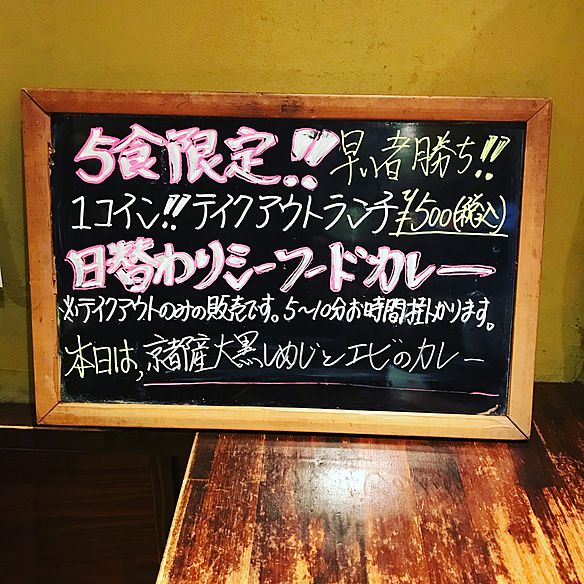 5食限定!! 早い者勝ち!!
1コイン!! テイクアウトランチ ¥500(税込)
日替わりシーフードカレー
※テイクアウトのみの販売です。5〜10分お時間掛かります。
本日は,京都産大黒しめじとエビのカレー